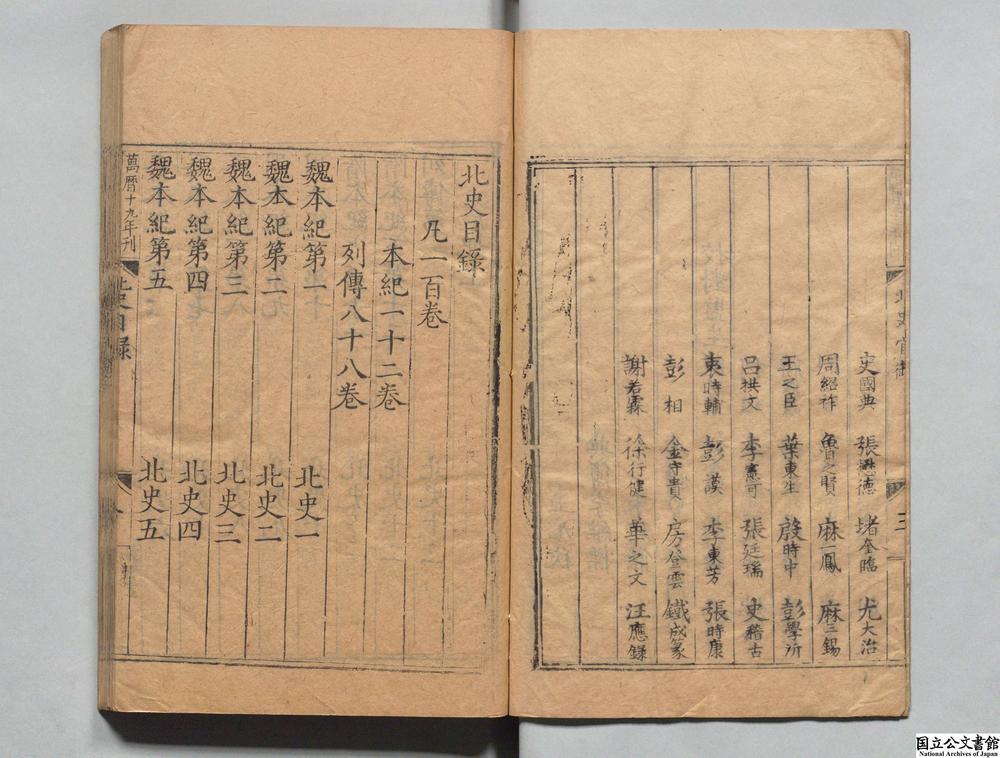 史國典 張懋德 堵奎臨 尤大治
周紹祚 魯之賢 麻一鳳 麻三錫
王之臣 葉東生 殷時中 彭學所
呂拱文 李憲可 張廷瑞 史稽古
袁時輔 彭謨 李東芳 張時康
彭相 金守貴 房登雲 鐵成篆
謝若霖 徐行健 華之文 汪應録
三
北史目錄
凡一百卷
本紀一十二卷
列傳八十八卷
魏本紀第一 北史一
魏本紀第二 北史二
魏本紀第三 北史三
魏本紀第四 北史四
魏本紀第五 北史五
萬曆十九年刊
北史目録
国立公文書館
National Archives of Japan